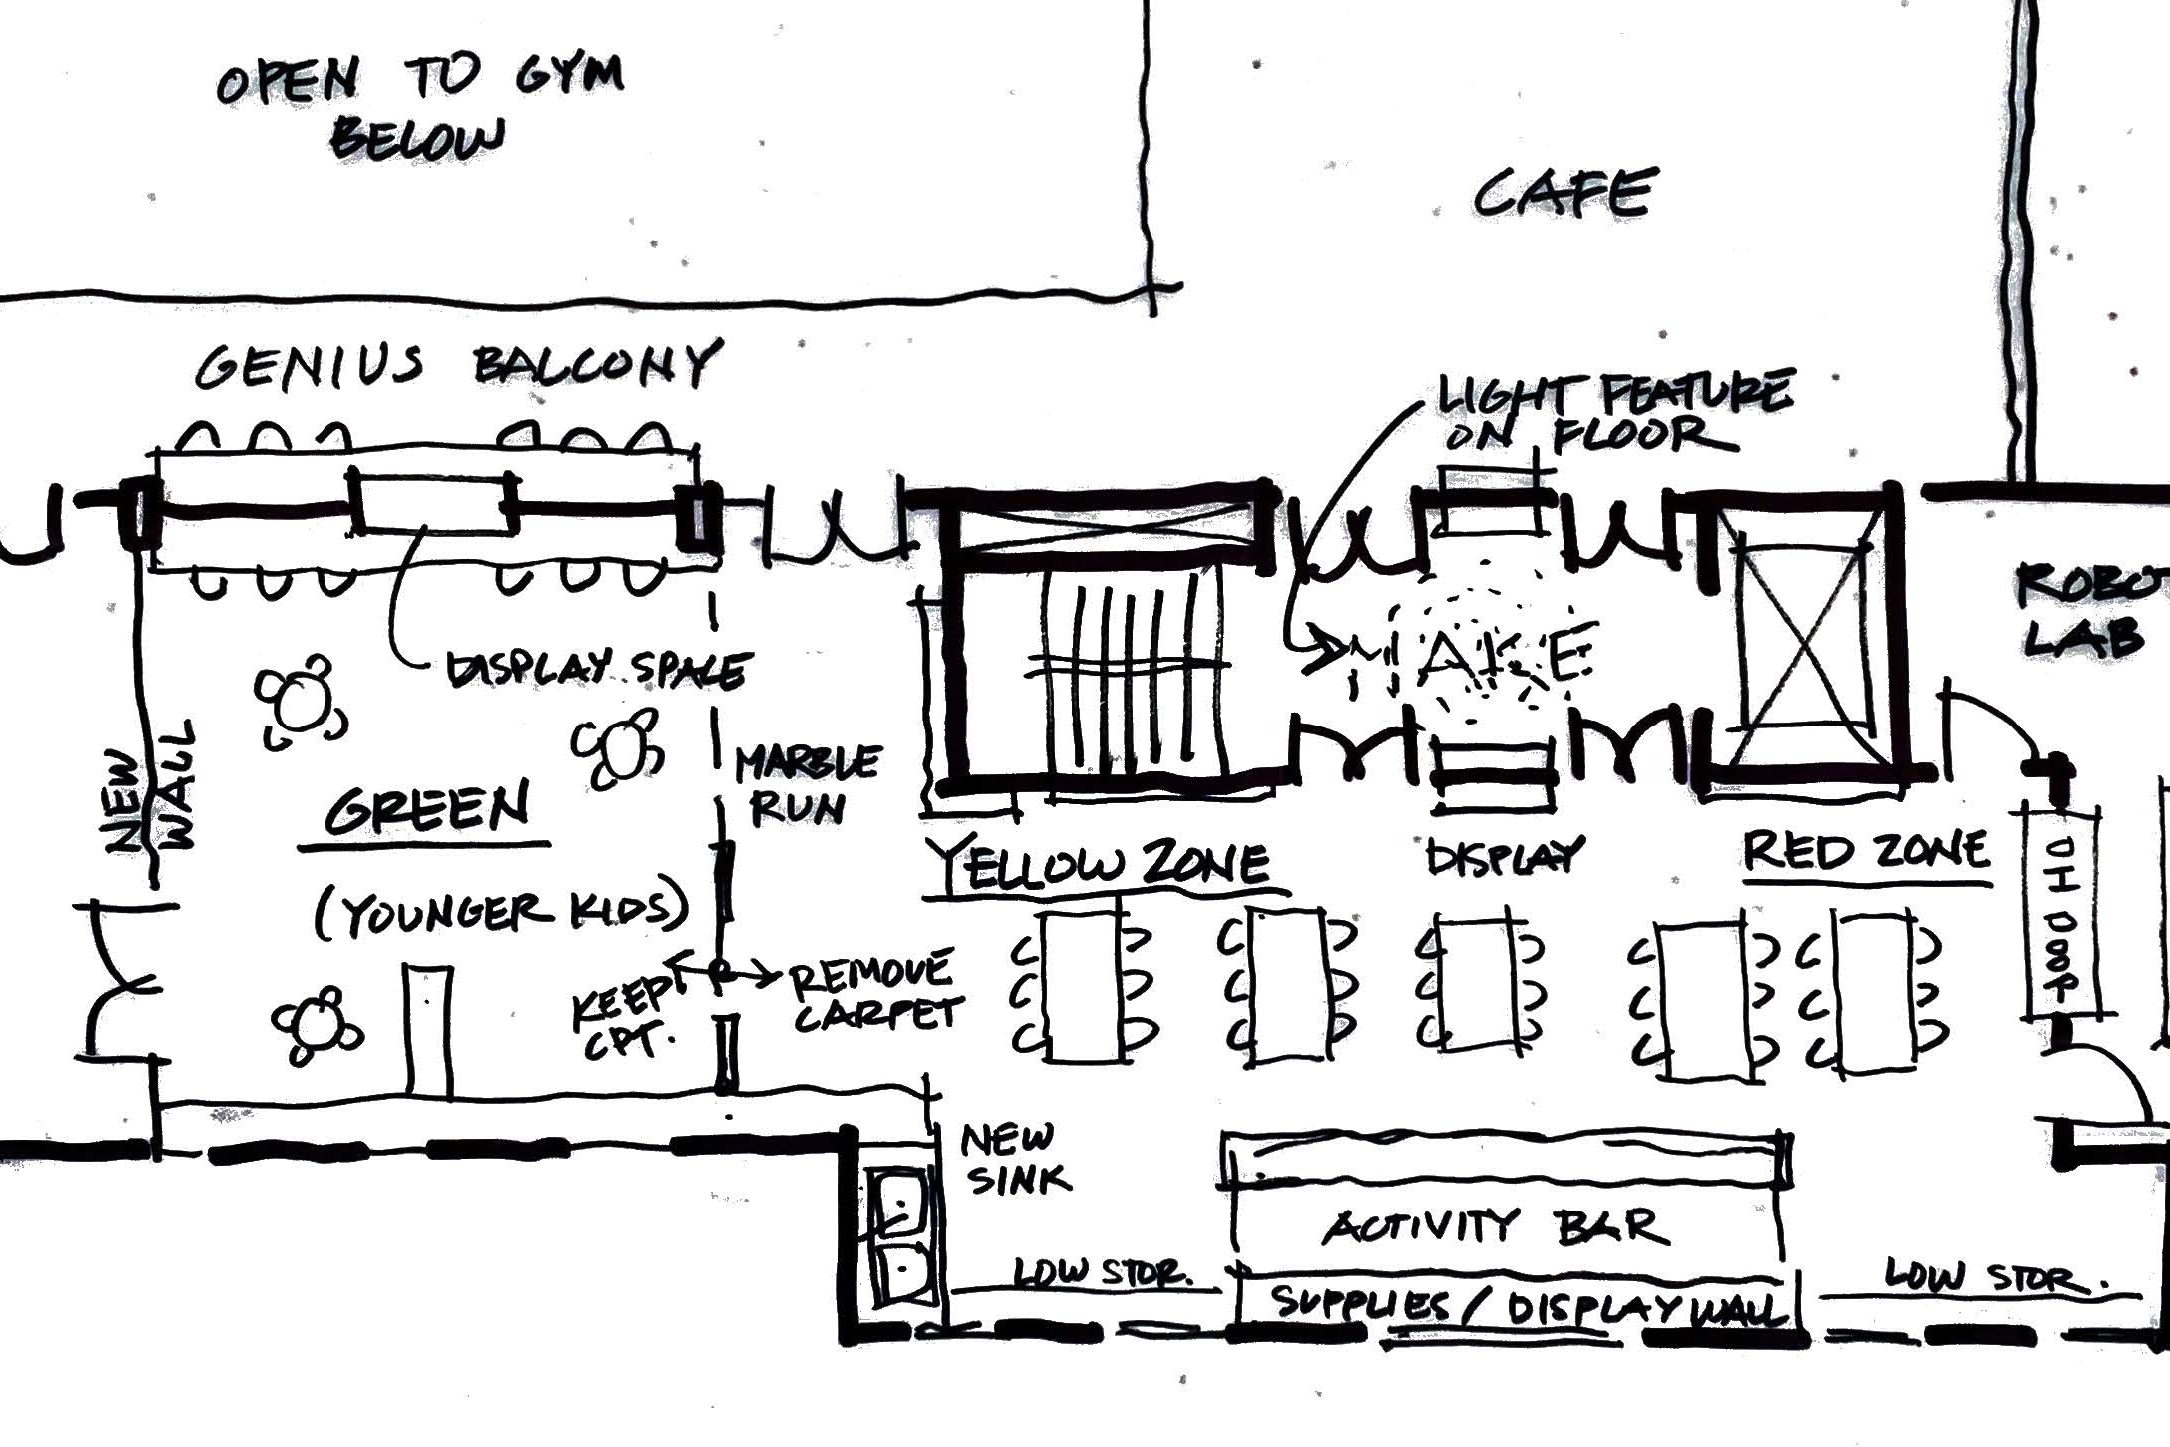 OPEN TO GYM
BELOW
CAFE
GENIUS BALCONY
LIGHT FEATURE
ON FLOOR
DISPLAY SPACE
MAKE
ROBOT
LAB
NEW
WALL
MARBLE
RUN
GREEN
(YOUNGER KIDS)
YELLOW ZONE
DISPLAY
RED ZONE
KEEP
CPT.
REMOVE
CARPET
NEW
SINK
ACTIVITY BAR
LOW STOR.
SUPPLIES / DISPLAY WALL
LOW STOR.